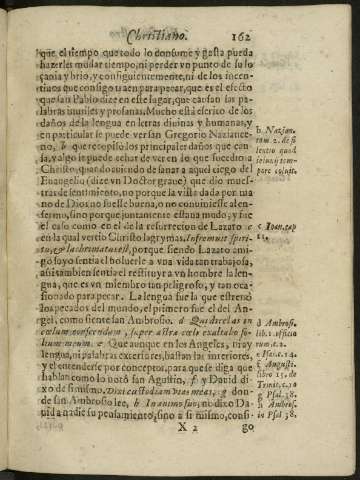 Christiano. 162
que, el tiempo que todo lo consume y gasta pueda
hazerles mudar tiempo, ni perder vn punto de su lo
çania y brio, y consiguientemente, ni de los incen-
tiuos que consigo traen para pecar, que es el efecto
que san Pablo dize en este lugar, que causan las pa-
labras inutiles y profanas. Mucho está escrito de los
daños de la lengua en letras diuinas y humanas, y
en particular se puede ver san Gregorio Nazianze-
no, b que recopilò los principales daños que cau-
sa, y algo se puede echar de ver en lo que sucedio a
Christo, quando auiendo de sanar a aquel ciego del
Euangelio (dize vn Doctor graue) que dio mues-
tras de sentimiento, no porque la vista dada por ma
no de Dios no fuesse buena, o no conuiniesse al en-
fermo, sino por que juntamente estaua mudo, y fue
el caso como en el de la resurreccion de Lazaro c
en la qual vertio Christo lagrymas. Infremuit spiri-
tu, & lachrimatus est, porque siendo Lazaro ami-
go suyo sentia el boluerle a vna vida tan trabajosa,
assi tambien sentia el restituyr a vn hombre la len-
gua, que es vn miembro tan peligroso, y tan oca-
sionado para pecar. La lengua fue la que estrenò
los pecados del mundo, el primero fue el del An-
gel, como siente san Ambrosio. d Qui dicelas in
cœlum conscendam, super astra cœli exaltabo so-
lium meum. e Que aunque en los Angeles, ni ay
lengua, ni palabras exteriores, bastan las interiores,
y el entenderse por conceptos, para que se diga que
hablan como lo notò san Agustin, f y Dauid di-
xo de si mismo. Dixi custodiam vias meas, g don-
de san Ambrosio lee, h In animo suo, no dixo Da
uid a nadie su pensamiento, sino a si mismo, consi-
X 2 go
b Nazian.
ram 2. de si
lentio quod
ieiunij tem-
pore coluit.
c Ioan. cap
11.
d Ambrosi.
lib. 1. officio
rum c. 2.
e Isai. c. 14.
f Augusti.
libro 15. de
Trinit. c. 10
g Psal. 38.
h Ambros.
in Psal 38.